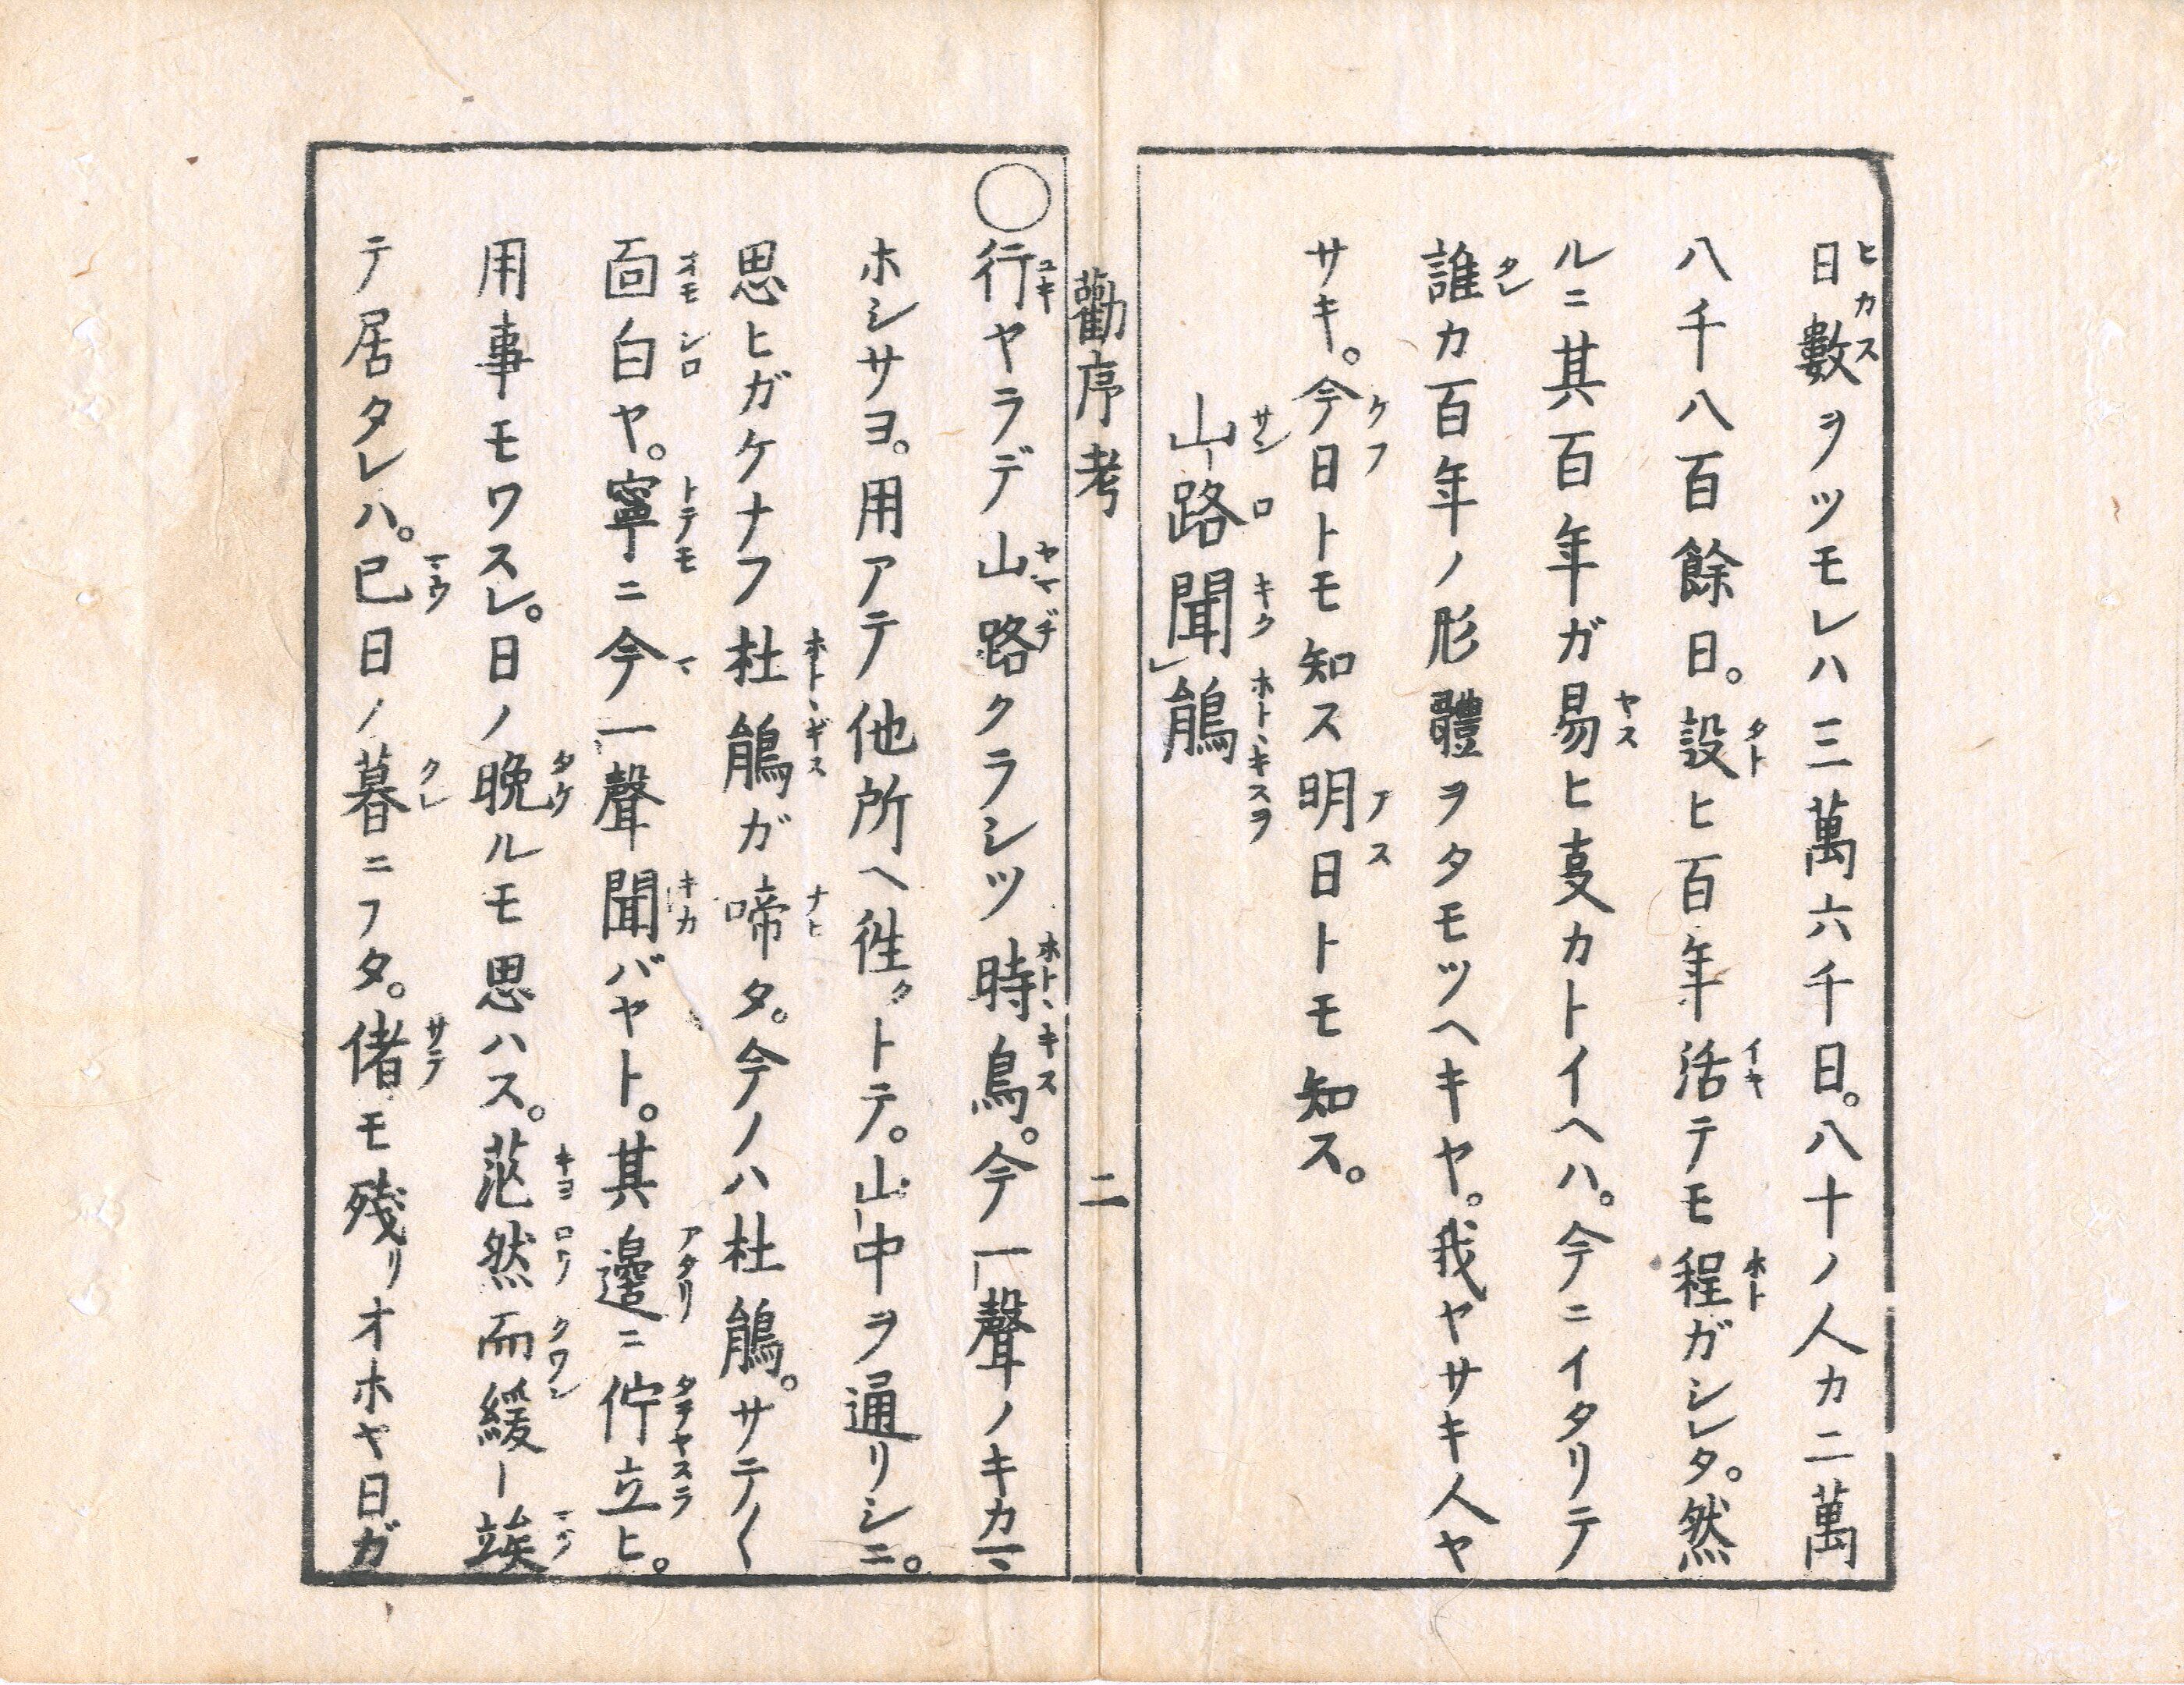 日數ヲツモレハ三萬六千日。八十ノ人カ二萬
八千八百餘日。設ヒ百年活テモ程ガシレタ。然
ルニ其百年ガ易ヒ㕝カトイヘハ。今ニイタリテ
誰カ百年ノ形體ヲタモツヘキヤ。我ヤサキ人ヤ
サキ。今日トモ知ス明日トモ知ス。
山路聞鵑
勸序考 二
○行ヤラデ山路クラシツ時鳥。今一聲ノキカマ
ホシサヨ。用アテ他所ヘ徃クトテ。山中ヲ通リシニ。
思ヒガケナフ杜鵑ガ啼タ。今ノハ杜鵑。サテ〱
面白ヤ。寧ニ今一聲聞バヤト。其邊ニ佇立ヒ。
用事モワスレ。日ノ晩ルモ思ハス。茫然而緩ー竢
テ居タレハ。已日ノ暮ニフタ。偖モ残リオホヤ日ガ